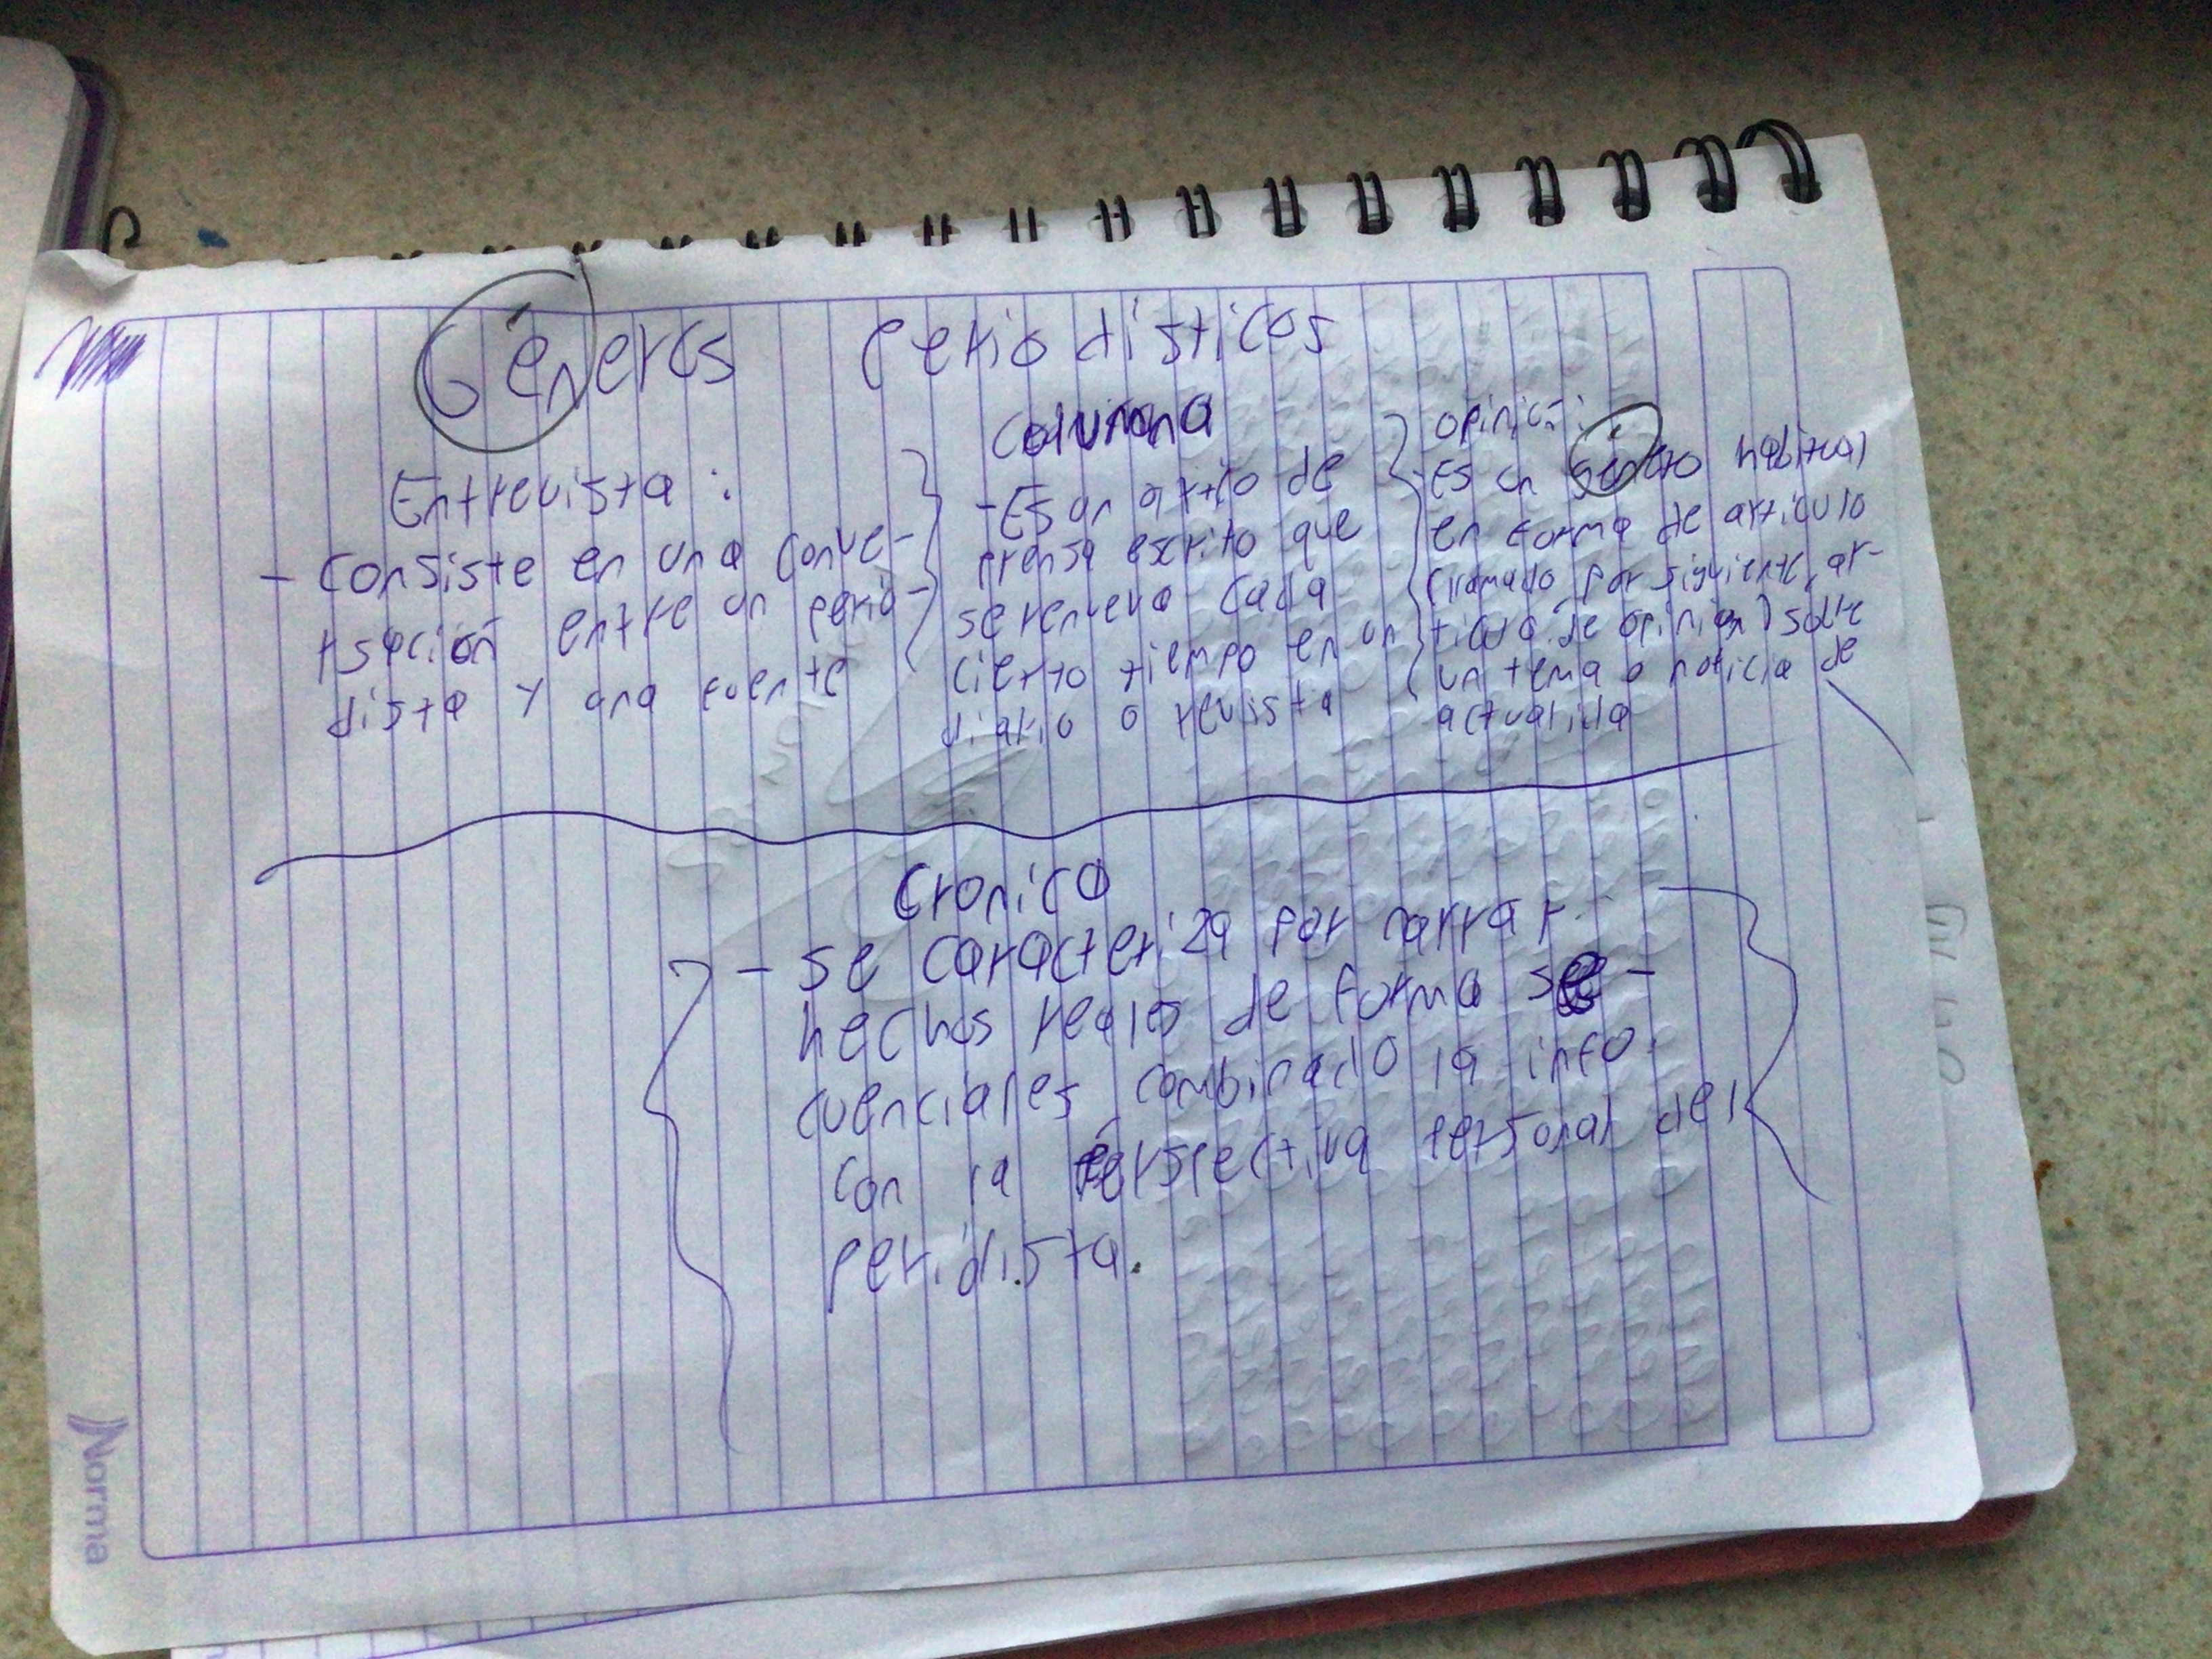 Géneros periodisticos
Entrevista:
- Consiste en una conve-
rsación entre un perio-
dista y una fuente
Columna
- Es un artio de
prensa escrito que
se renueva cada
cierto tiempo en un
diario o revista
opinión:
- Es un género habitual
en forma de articulo
(llamado, por siguiente, ar-
ticulo de opinión) sobre
un tema o noticia de
actualida
Cronica
- se caracteriza por narrar
hechos reales de forma se-
cuenciales, combinado la info.
con la perspectiva personal del
peridista.
Norma